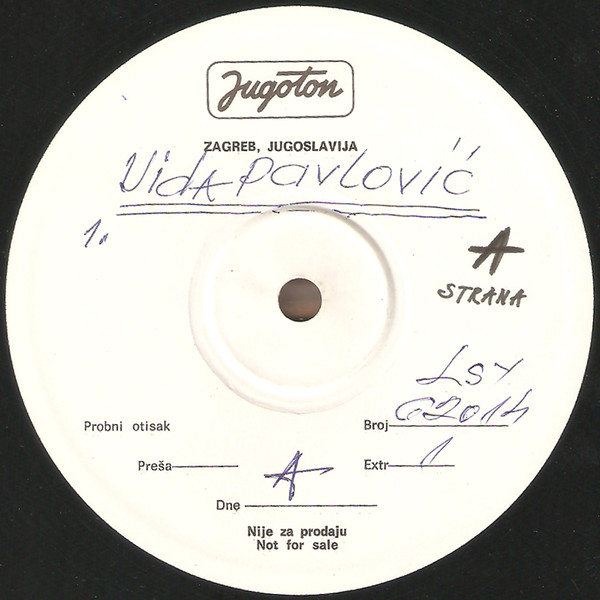 Jugoton
ZAGREB, JUGOSLAVIJA
Vida Pavlović
1.
A
STRANA
LSY
Probni otisak
Broj 62014
Preša
Extr 1
A
Dne
Nije za prodaju
Not for sale